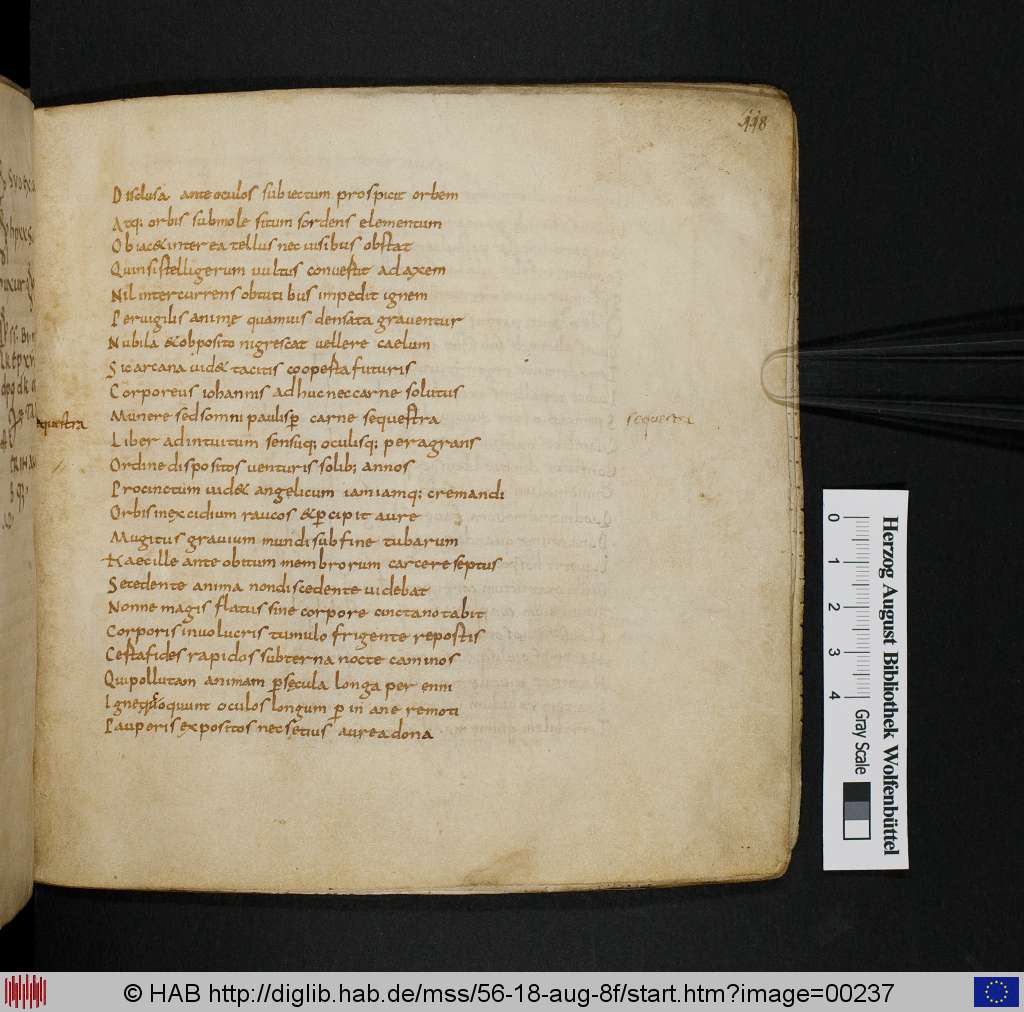 118
Disclusa ante oculos subiectum prospicit orbem
Atq; orbis submole situm sordens elementum
Obiac& interea tellus nec uisibus obstat
Quin si stelligerum uultus conuestit ad axem
Nil intercurrens obtutibus impedit ignem
Peruigilis animę quamuis densata grauentur
Nubila & obposito nigrescat uellere caelum
Sic arcana uid& tacitis cooperta futuris
Corporeus iohannis adhuc nec carne solutus
Munere sed somni paulisp carne sequestra
sequestra
Liber ad intuitum sensuq; oculisq; peragrans
Ordine dispositos uenturis solib; annos
Procinctum uid& angelicum iam iamq; cremandi
Orbis in excidium raucos & pcipit aure
Mugitus grauium mundi sub fine tubarum
Haec ille ante obitum membrorum carcere septus
Secedente anima non discedente uidebat
Nonne magis flatus sine corpore cunctanotabit
Corporis inuolucris tumulo frigente repostis
Certa fides rapidos subterna nocte caminos
Qui pollutam animam p secula longa per enni
oculos longum p in ane remoti
Pauperis expositos nec setius aurea dona
0 1 2 3 4
Gray Scale
Herzog August Bibliothek Wolfenbüttel
© HAB http://diglib.hab.de/mss/56-18-aug-8f/start.htm?image=00237